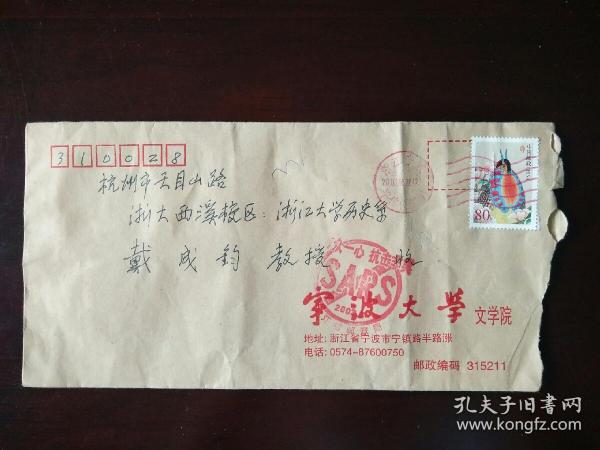 310028
杭州市天目山路
浙大西溪校区：浙江大学历史系
戴成钧 教授 收
80
中国邮政
一心 抗击
SARS
宁波大学 文学院
地址: 浙江省宁波市宁镇路半路涨
电话: 0574-87600750
邮政编码 315211
孔夫子旧书网
www.kongfz.com